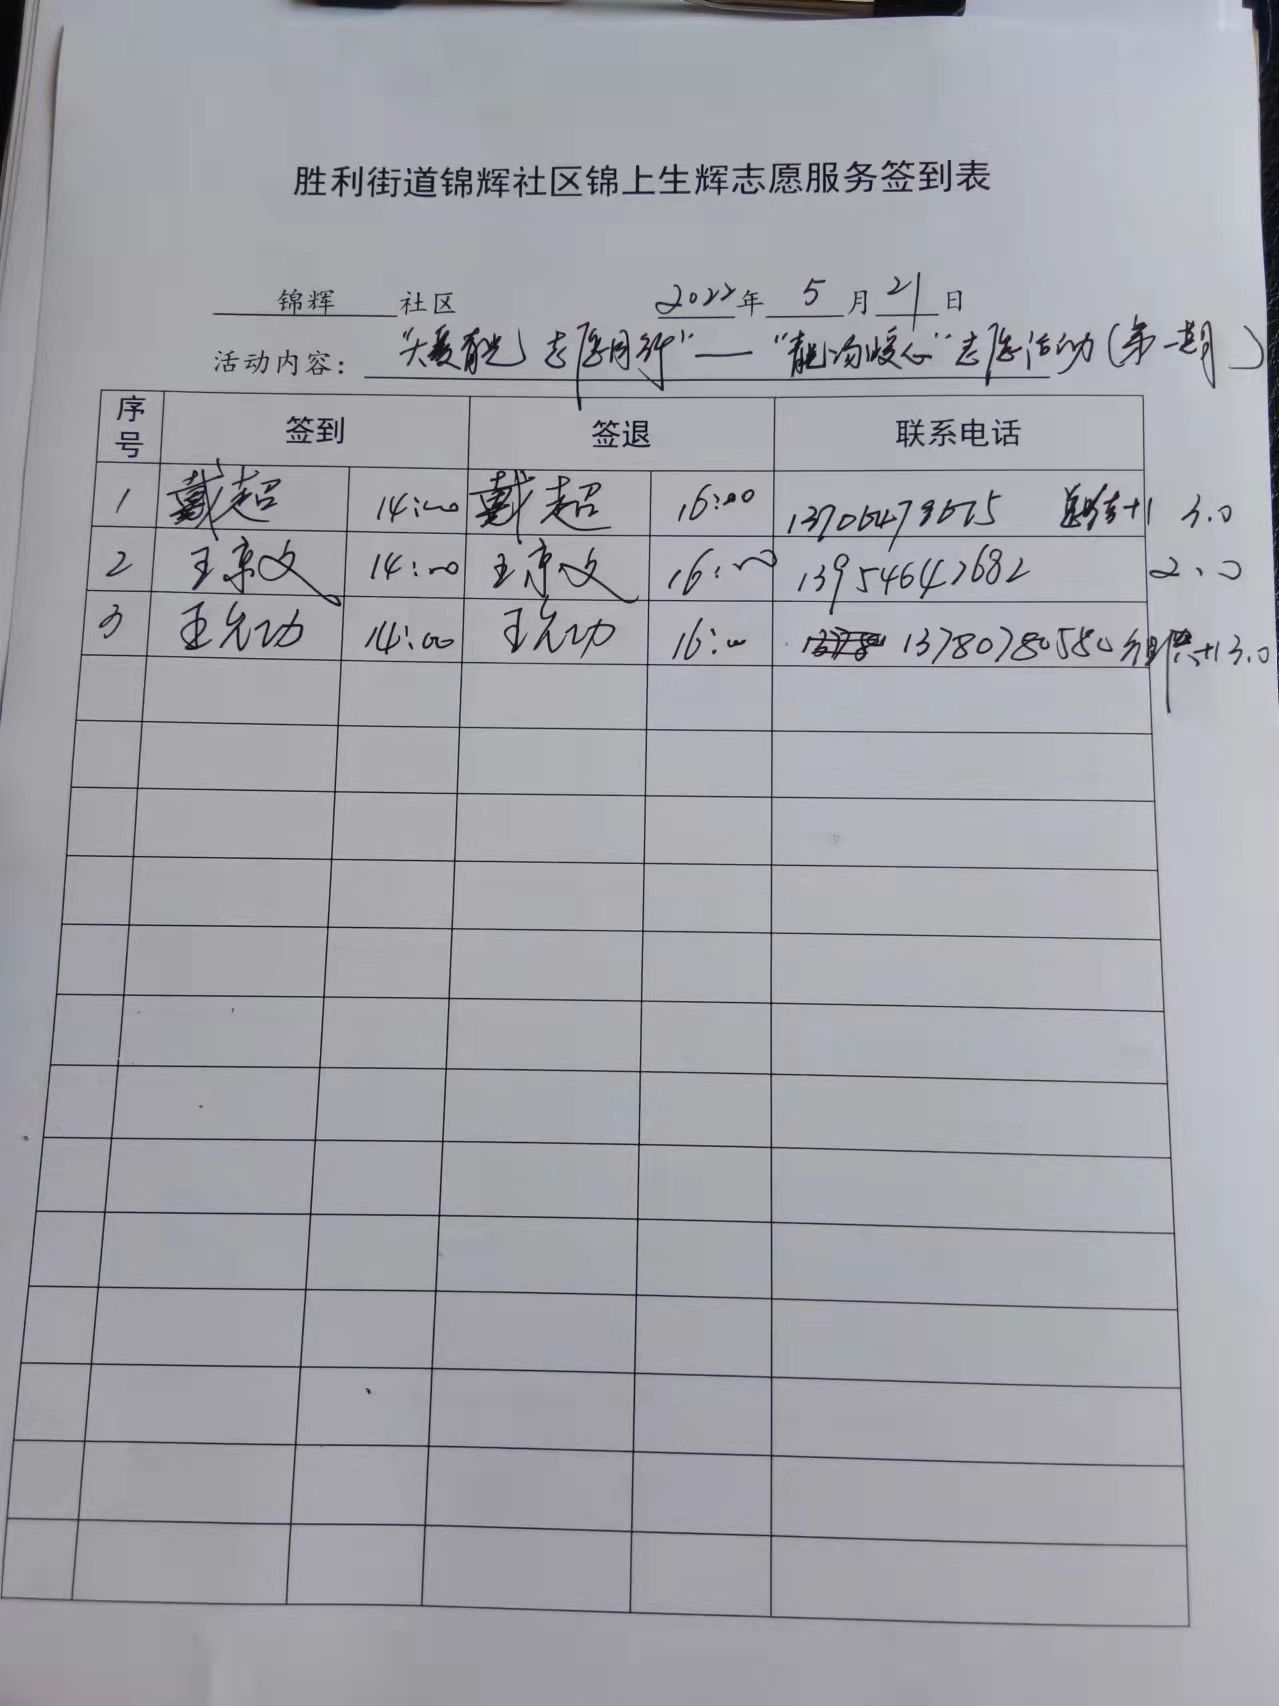 胜利街道锦辉社区锦上生辉志愿服务签到表
锦辉 社区 2022年 5 月 21 日
活动内容： “大爱有光 志愿同行”—“ 暖心”志愿活动(第一期)
序号 签到 签退 联系电话
1 戴超 14:00 戴超 16:00 +1 3.0
2 王京文 14:00 王京文 16:00 13954642682 2.0
3 王允功 14:00 王允功 16:00 13780780580 组织+1 3.0